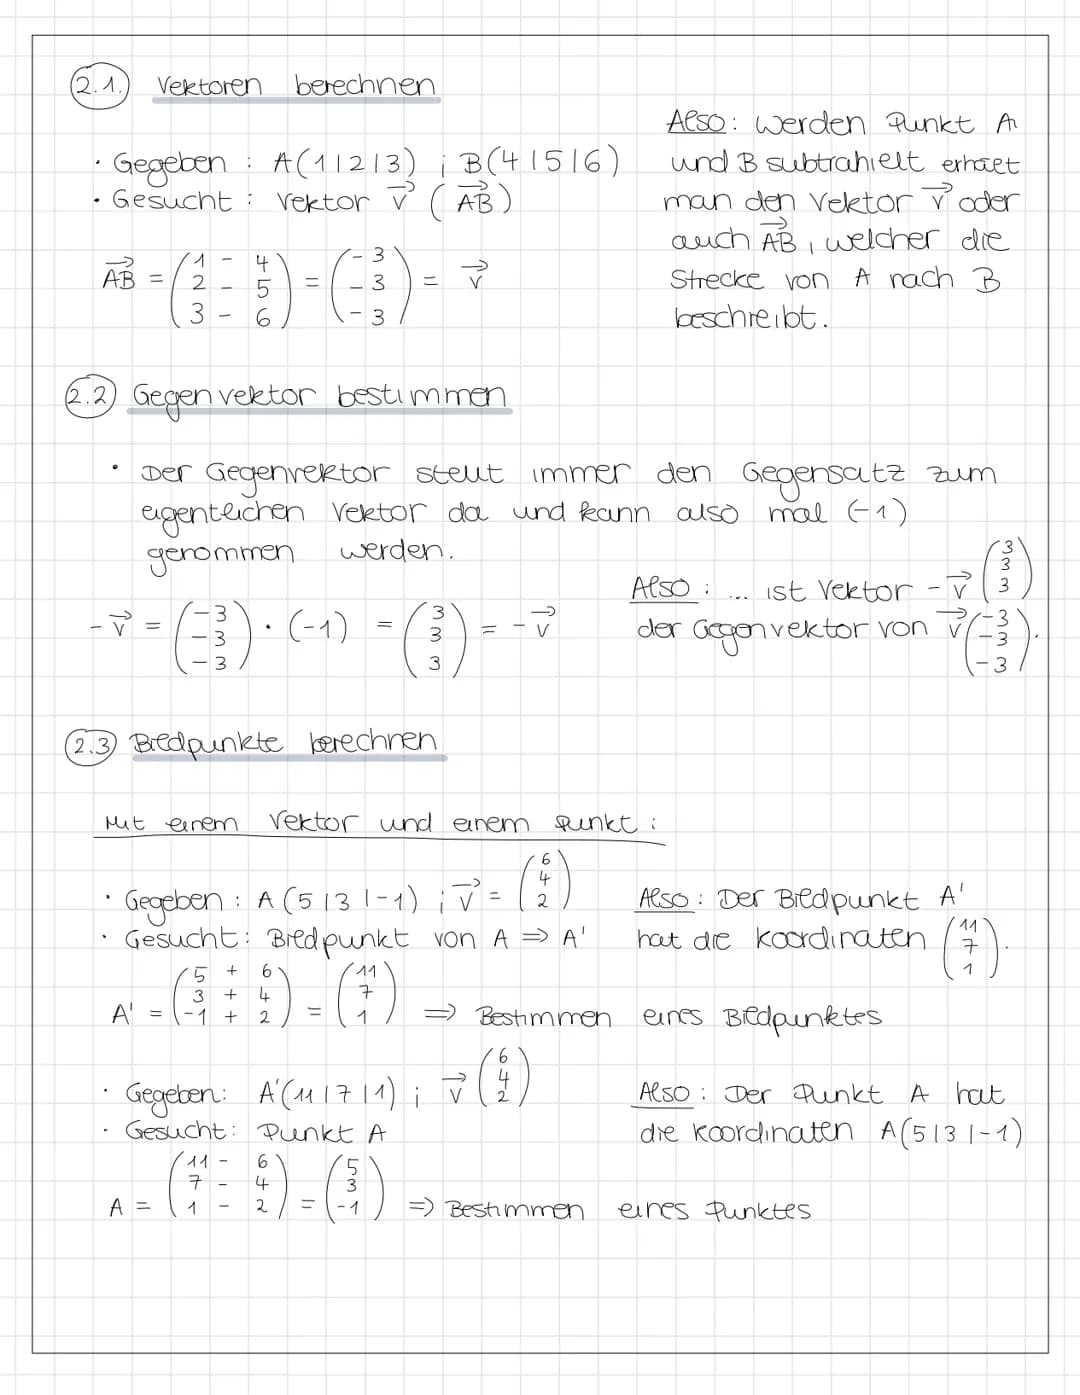 2.1. Vektoren berechnen
• Gegeben : A(1|2|3) ; B(4|5|6)
• Gesucht : Vektor v⃗ (AB⃗)
AB⃗ = (1 - 4
2 - 5
3 - 6) = (-3
-3
-3) = v⃗
Also: Werden Punkt A
und B subtrahielt erhält
man den Vektor v⃗ oder
auch AB⃗, welcher die
Strecke von A nach B
beschreibt.
2.2 Gegenvektor bestimmen
• Der Gegenvektor stellt immer den Gegensatz zum
eigentlichen Vektor da und kann also mal (-1)
genommen werden.
-v⃗ = (-3
-3
-3) · (-1) = (3
3
3) = -v⃗
Also : ... ist Vektor -v⃗ (3
3
3)
der Gegenvektor von v⃗ (-3
-3
-3).
2.3 Bildpunkte berechnen
Mit einem Vektor und einem Punkt :
• Gegeben : A (5|3|-1) ; v⃗ = (6
4
2)
• Gesucht : Bildpunkt von A ⇒ A'
A' = (5 + 6
3 + 4
-1 + 2) = (11
7
1) ⇒ Bestimmen eines Bildpunktes
Also : Der Bildpunkt A'
hat die Koordinaten (11
7
1).
• Gegeben: A'(11|7|1) ; v⃗ (6
4
2)
• Gesucht: Punkt A
A = (11 - 6
7 - 4
1 - 2) = (5
3
-1) ⇒ Bestimmen eines Punktes
Also : Der Punkt A hat
die Koordinaten A(5|3|-1)